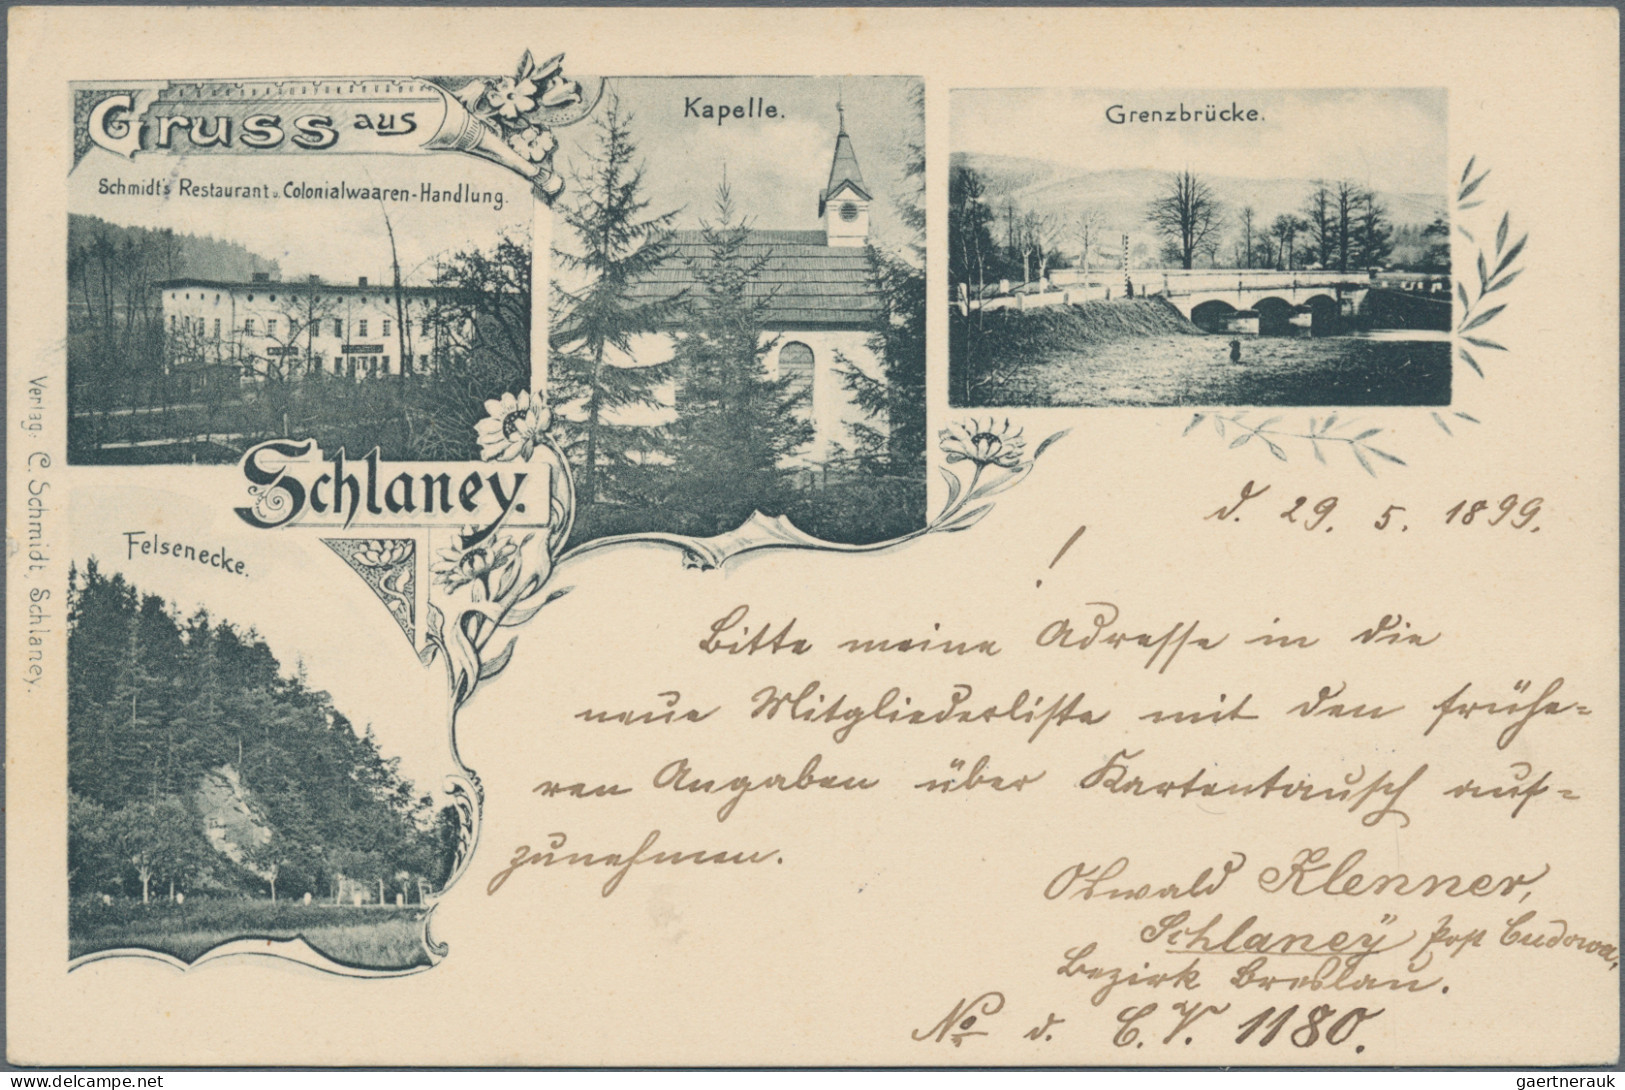 Gruss aus
Schmidt's Restaurant u. Colonialwaaren-Handlung.
Kapelle.
Grenzbrücke.
Schlaney.
Felsenecke.
Verlag: C. Schmidt, Schlaney.
d. 29. 5. 1899.
!
Bitte meine Adresse in die
neue Mitgliederliste mit den frühe-
ren Angaben über Kartentausch auf-
zunehmen.
Oswald Klenner,
Schlaney Post Cudowa,
Bezirk Breslau.
No d. C. V. 1180.
delcampe.net
gaertnerauk